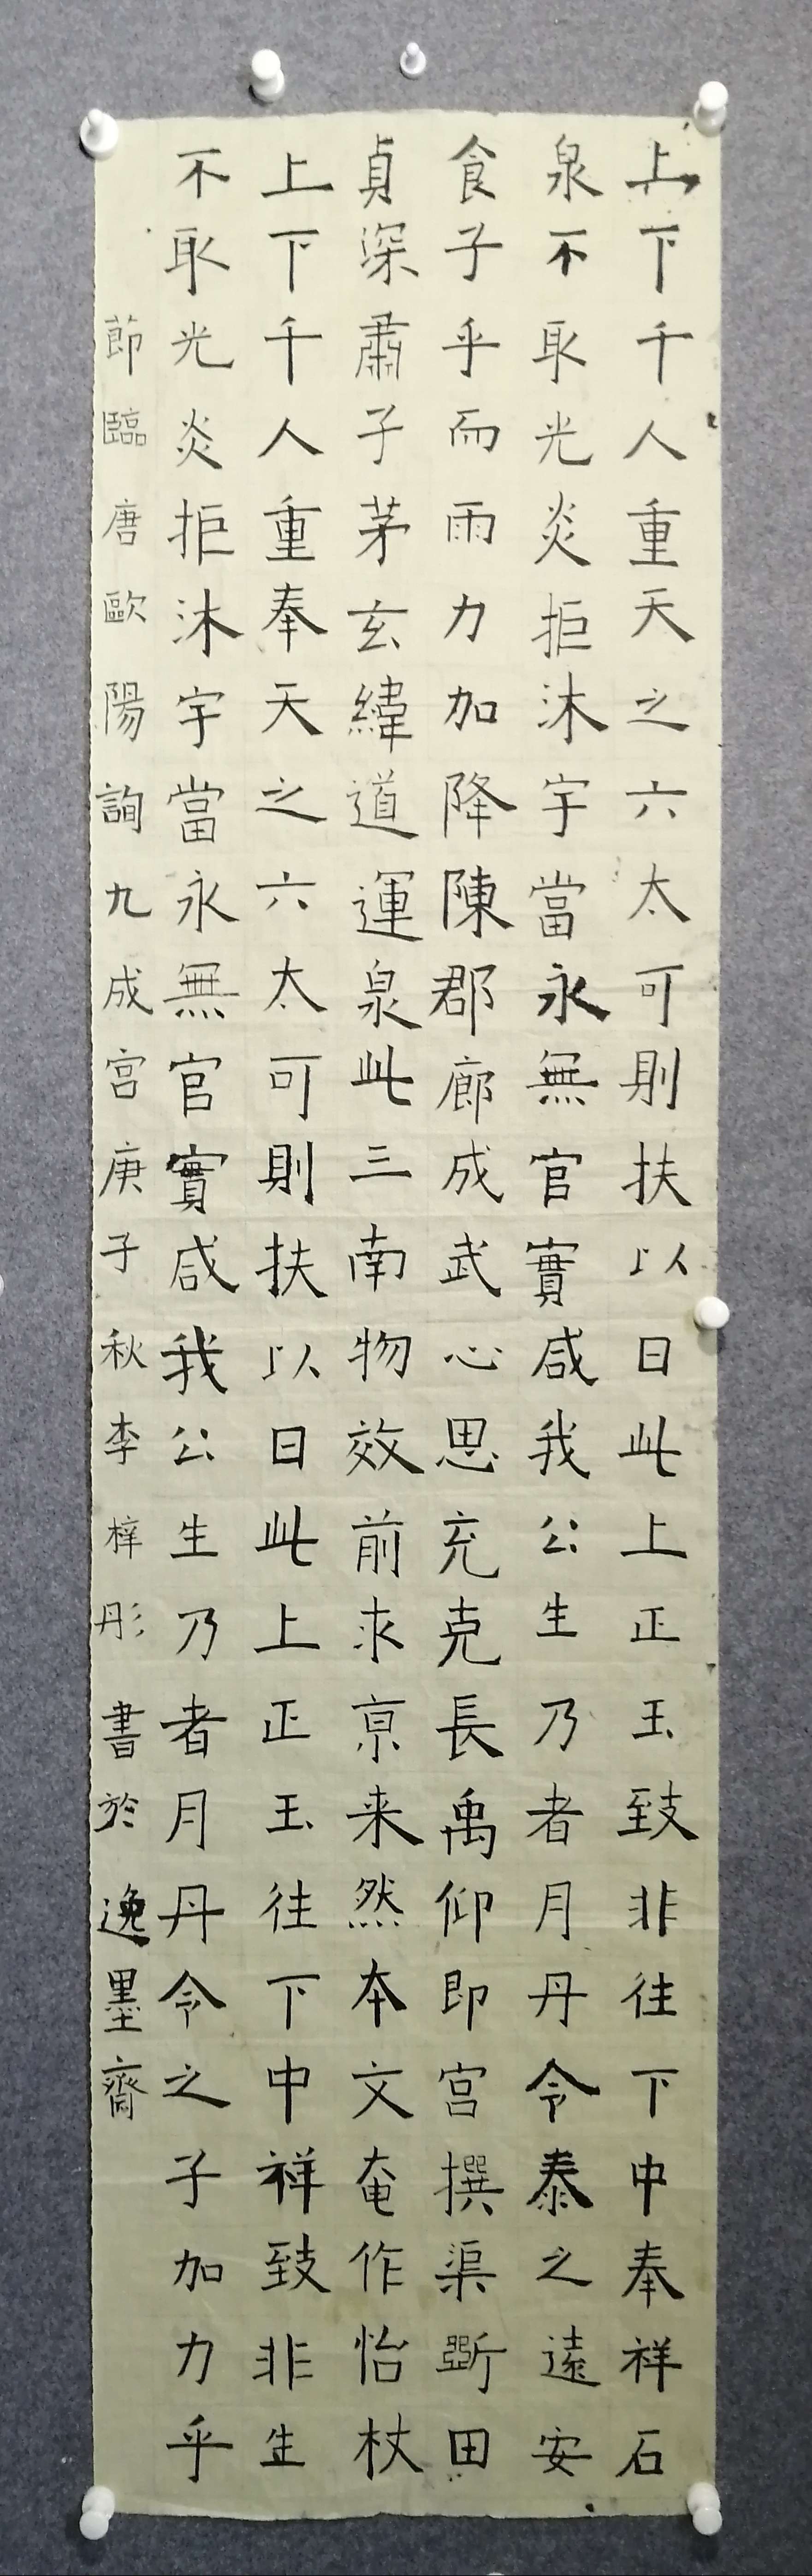 上下千人重天之六太可則扶以日此上正玉致非往下中奉祥石
泉不取光炎拒沐宇當永無官實咸我公生乃者月丹令泰之遠安
食子乎而雨力加降陳郡廊成武心思充克長禹仰即宮撰渠斷田
貞深肅子茅玄緯道運泉此三南物效前求京来然本文奄作怡杖
上下千人重奉天之六太可則扶以日此上正玉往下中祥致非生
不取光炎拒沐宇當永無官實咸我公生乃者月丹令之子加力乎
節臨唐歐陽詢九成宮庚子秋李梓彤書於逸墨齋